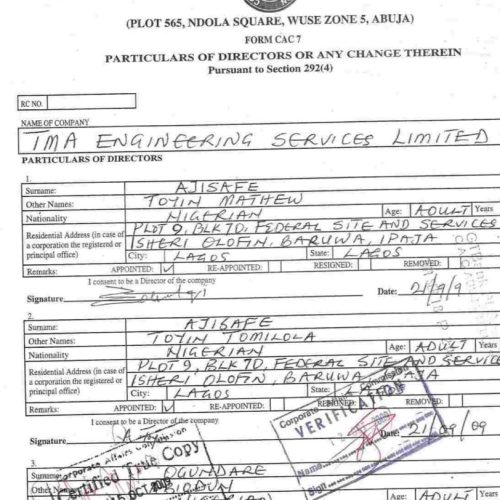 (PLOT 565, NDOLA SQUARE, WUSE ZONE 5, ABUJA)
FORM CAC 7
PARTICULARS OF DIRECTORS OR ANY CHANGE THEREIN
Pursuant to Section 292(4)
RC NO.
NAME OF COMPANY
TMA ENGINEERING SERVICES LIMITED
PARTICULARS OF DIRECTORS
1.
Surname: AJISAFE
Other Names: TOYIN MATHEW
Nationality NIGERIAN Age: ADULT Years
Residential Address (in case of a corporation the registered or principal office) PLOT 9, BLK 7D, FEDERAL SITE AND SERVICES
ISHERI OLOFIN, BARUWA, IPAJA
City: LAGOS State: LAGOS
Remarks: APPOINTED: ✓ RE-APPOINTED: RESIGNED: REMOVED:
I consent to be a Director of the company
Signature Date: 21/9/9
2.
Surname: AJISAFE
Other Names: TOYIN TOMILOLA
Nationality NIGERIAN Age: ADULT Years
Residential Address (in case of a corporation the registered or principal office) PLOT 9, BLK 7D, FEDERAL SITE AND SERVICE
ISHERI OLOFIN, BARUWA, IPAJA
City: LAGOS
Remarks: APPOINTED: ✓ RE-APPOINTED: RESIGNED: REMOVED:
I consent to be a Director of the company
Signature Date: 21/09/09
Corporate Affairs Commission
VERIFICATION
Name
Sign
Corporate Affairs Commission
Certified True Copy
OCT
3.
Surname: OGUNDARE
Other Names: BIODUN